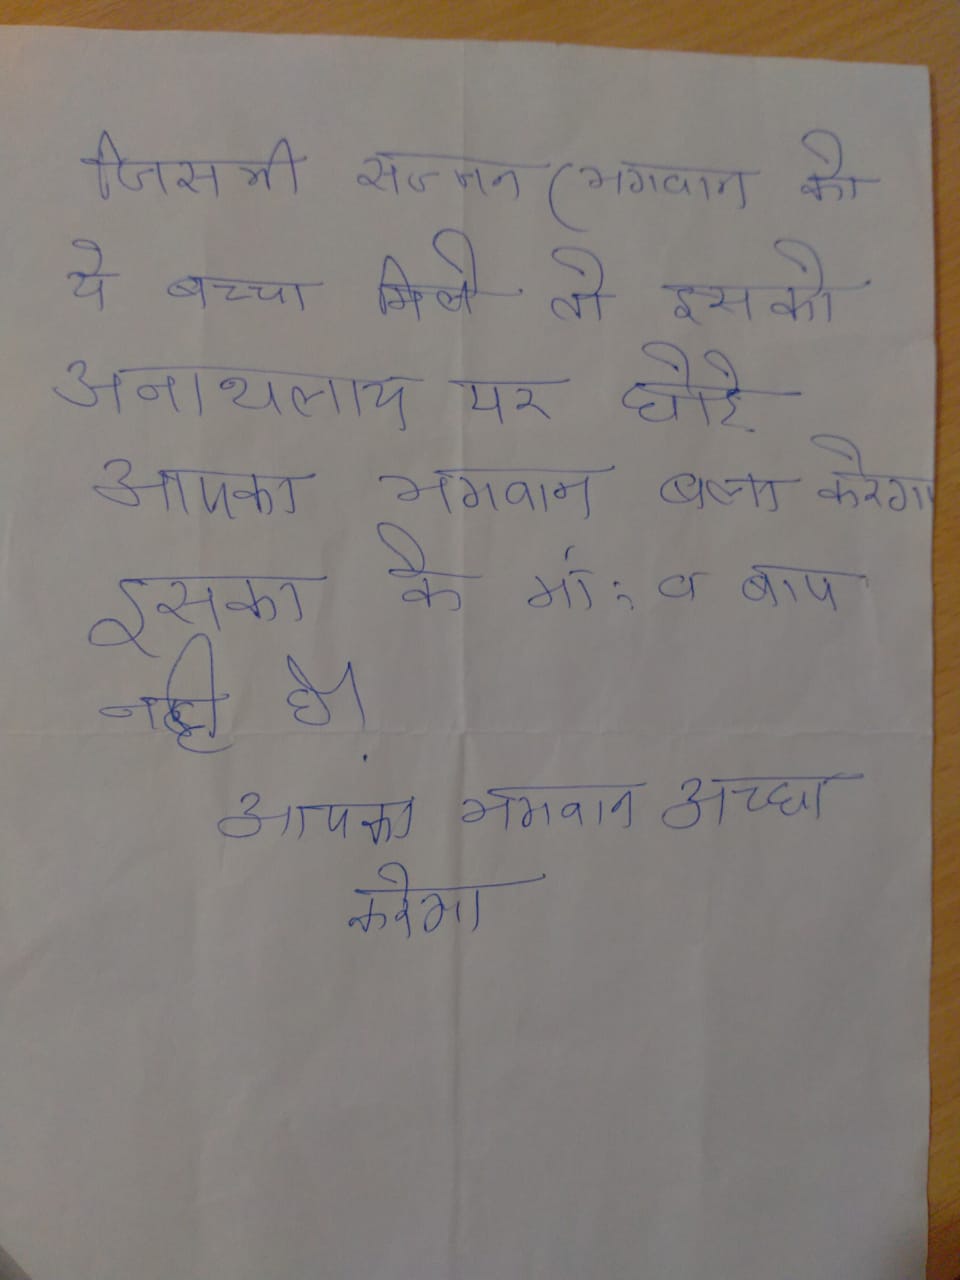 जिसभी सज्जन (भगवान को
ये बच्चा मिले तो इसको
अनाथलाय पर
आपका भगवान बला करेगा
इसका के मां: व बाप
नही है।
आपका भगवान अच्छा
करेगा